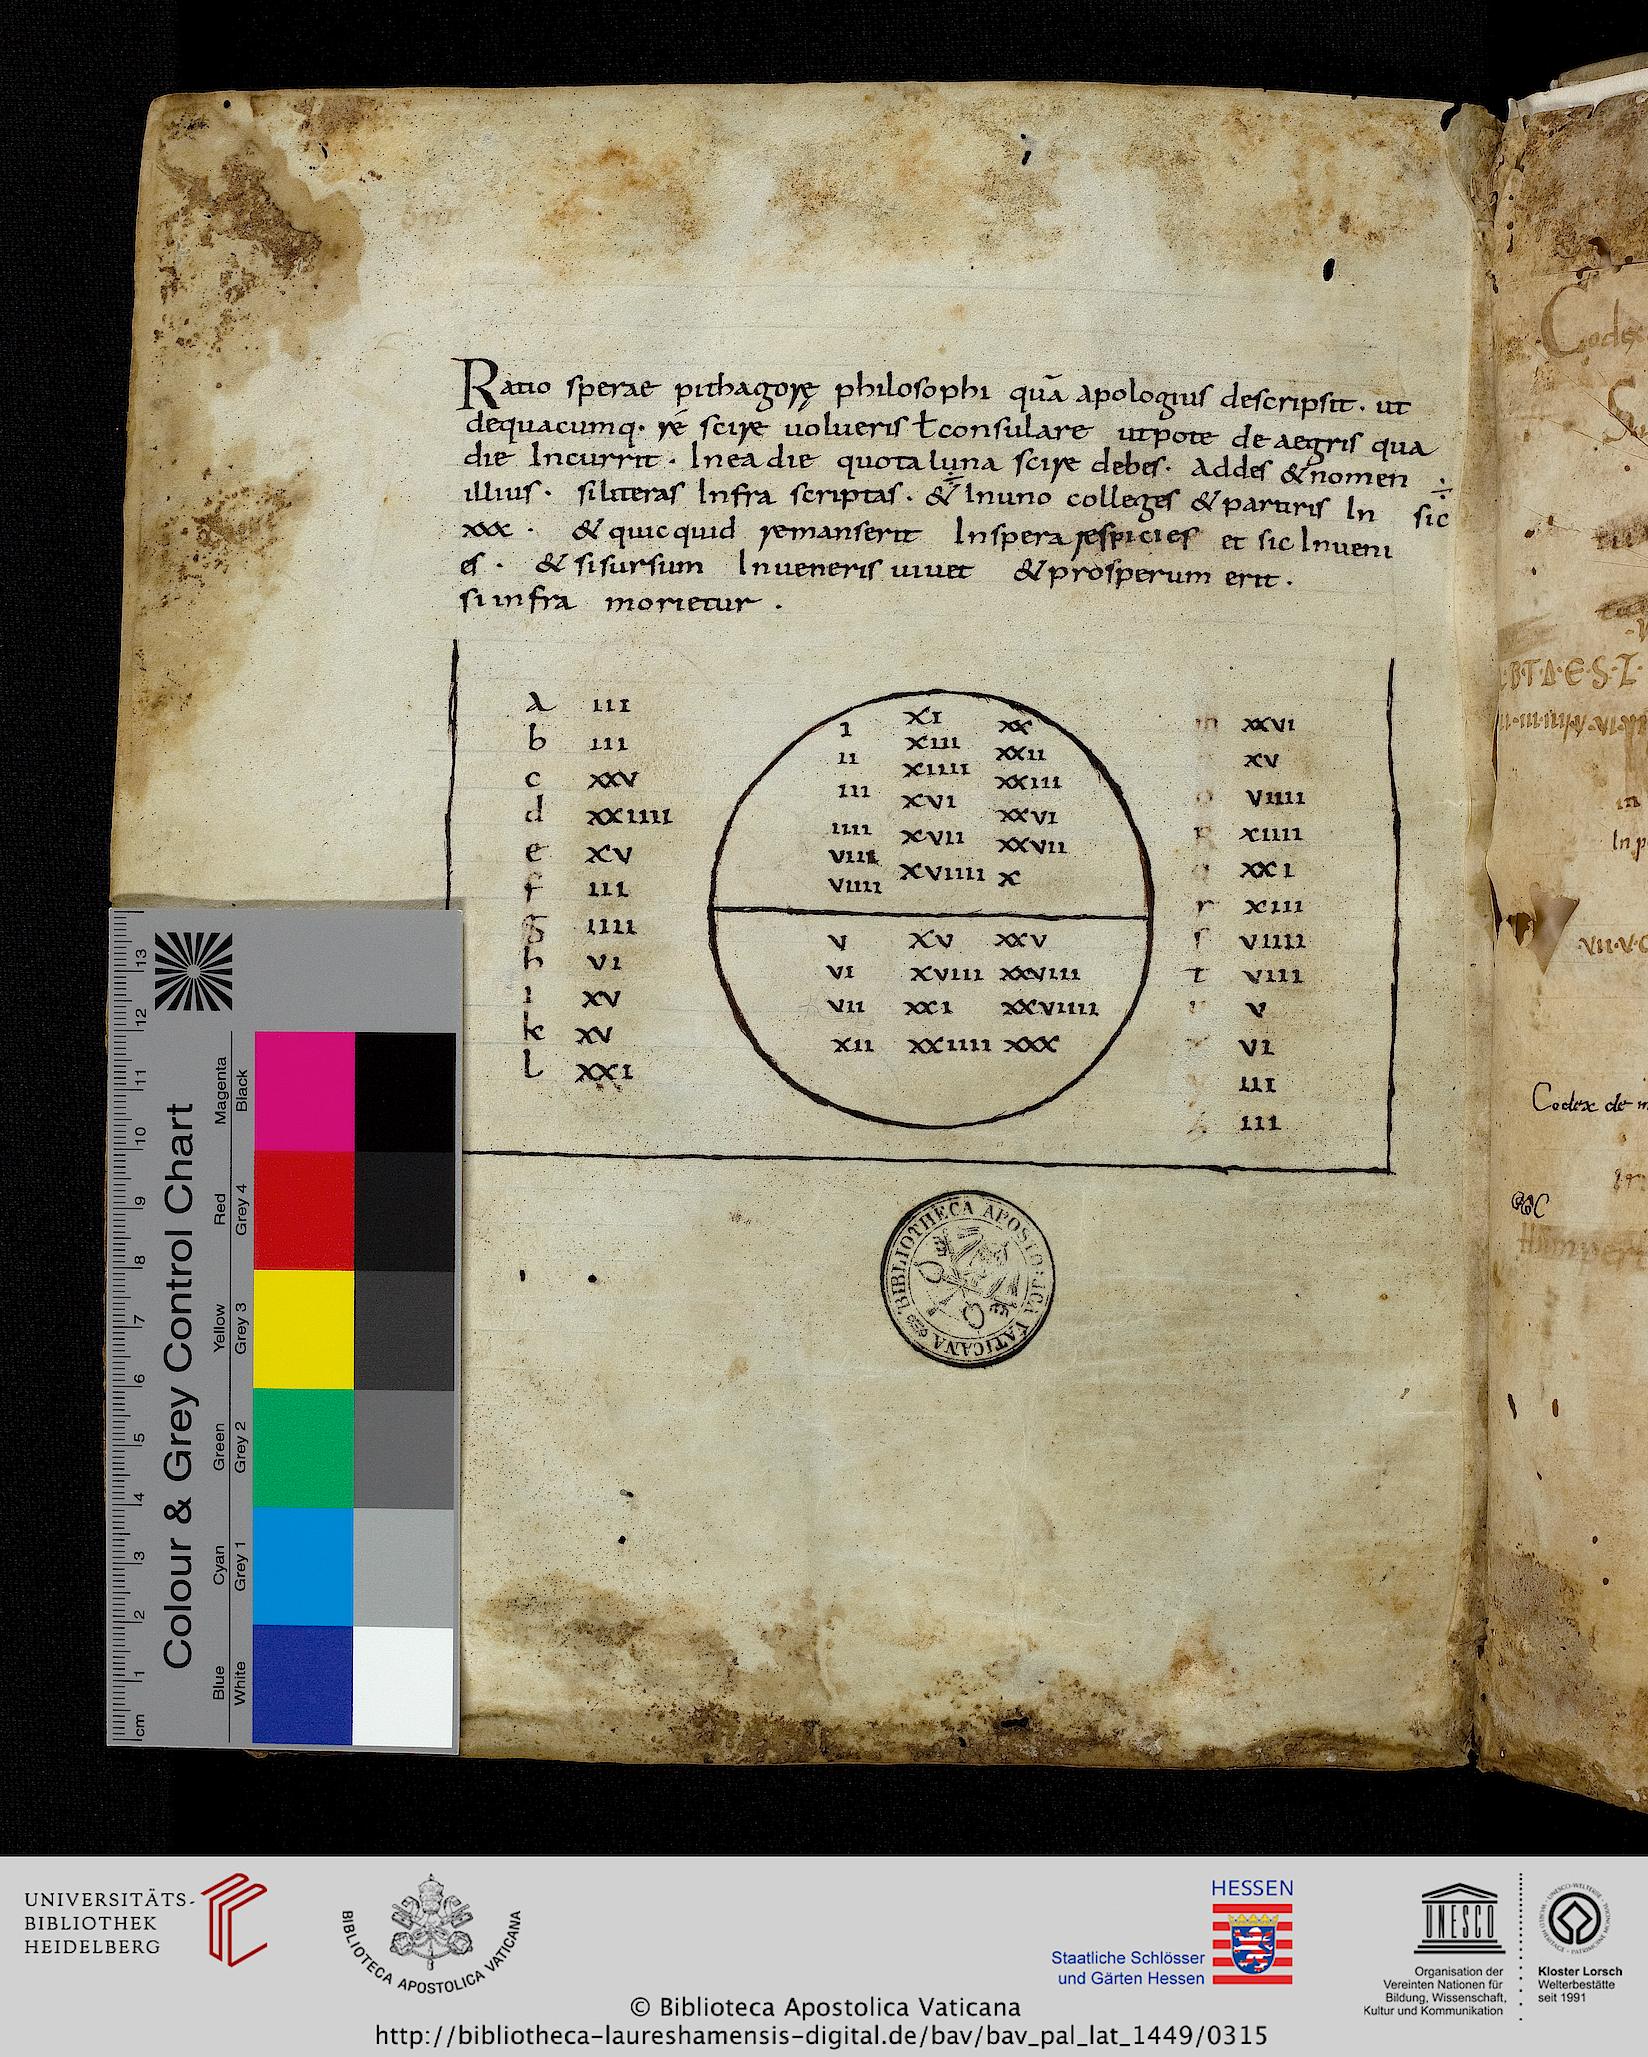 Ratio sperae pithagorę philosophi quā apologius descripsit. ut
dequacumq. rē scire uolueris ƚconsulare utpote de aegris qua
die Incurrit. Ineadie quotaluna scire debes. addes &nomen
illius. siliteras Infra scriptas. & Inuno colleges &partiris In sic
xxx. &quicquid remanserit Inspera respicies et sic Inueni
es. & sisursum Inueneris uiuet &prosperum erit.
siinfra morietur.
a III
b III
c XXV
d XXIIII
e XV
f III
g IIII
h VI
i XV
k XV
l XXI
I XI XX
II XIII XXII
III XIIII XXIII
IIII XVI XXVI
VIII XVII XXVII
VIIII XVIIII X
V XV XXV
VI XVIII XXVIII
VII XXI XXVIIII
XII XXIIII XXX
m XXVI
XV
o VIIII
XIIII
q XXI
r XIII
s VIIII
t VIII
u V
x VI
III
III
BIBLIOTHECA APOSTOLICA VATICANA
Codex
Codex de
Colour & Grey Control Chart
Blue Cyan Green Yellow Red Magenta
White Grey 1 Grey 2 Grey 3 Grey 4 Black
cm 1 2 3 4 5 6 7 8 9 10 11 12 13
UNIVERSITÄTS-
BIBLIOTHEK
HEIDELBERG
BIBLIOTECA APOSTOLICA VATICANA
HESSEN
Staatliche Schlösser
und Gärten Hessen
UNESCO
Organisation der
Vereinten Nationen für
Bildung, Wissenschaft,
Kultur und Kommunikation
Kloster Lorsch
Welterbestätte
seit 1991
© Biblioteca Apostolica Vaticana
http://bibliotheca-laureshamensis-digital.de/bav/bav_pal_lat_1449/0315